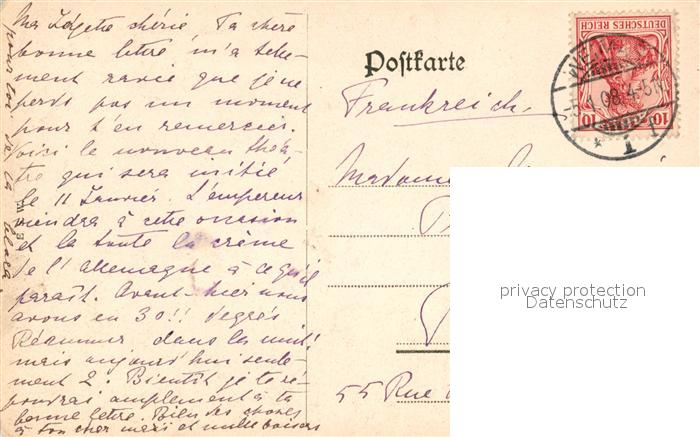 Ma Légette chérie Ta chère
bonne letre m'a telle-
ment ravie que je ne
perds pas un moment
pour t'en remercier.
Voici le nouveau théâ-
tre qui sera initié
le 11 Janvier. L'empereur
viendra à cette occasion
et la toute la crème
de l'Allemagne à ce qu'il
paraît. Avant-hier nous
avons eu 30!! degrés
Réaumur dans la nuit!
mais aujourd'hui seule-
ment 2. Bientôt je te ré-
pondrai amplement à ta
bonne letre. Bien des choses
à ton cher mari et mille baisers
pour toi de ta
Postkarte
Frankreich.
Madame
55 Rue
DEUTSCHES REICH
10 10
5.1.08.4-5
* 1
privacy protection
Datenschutz